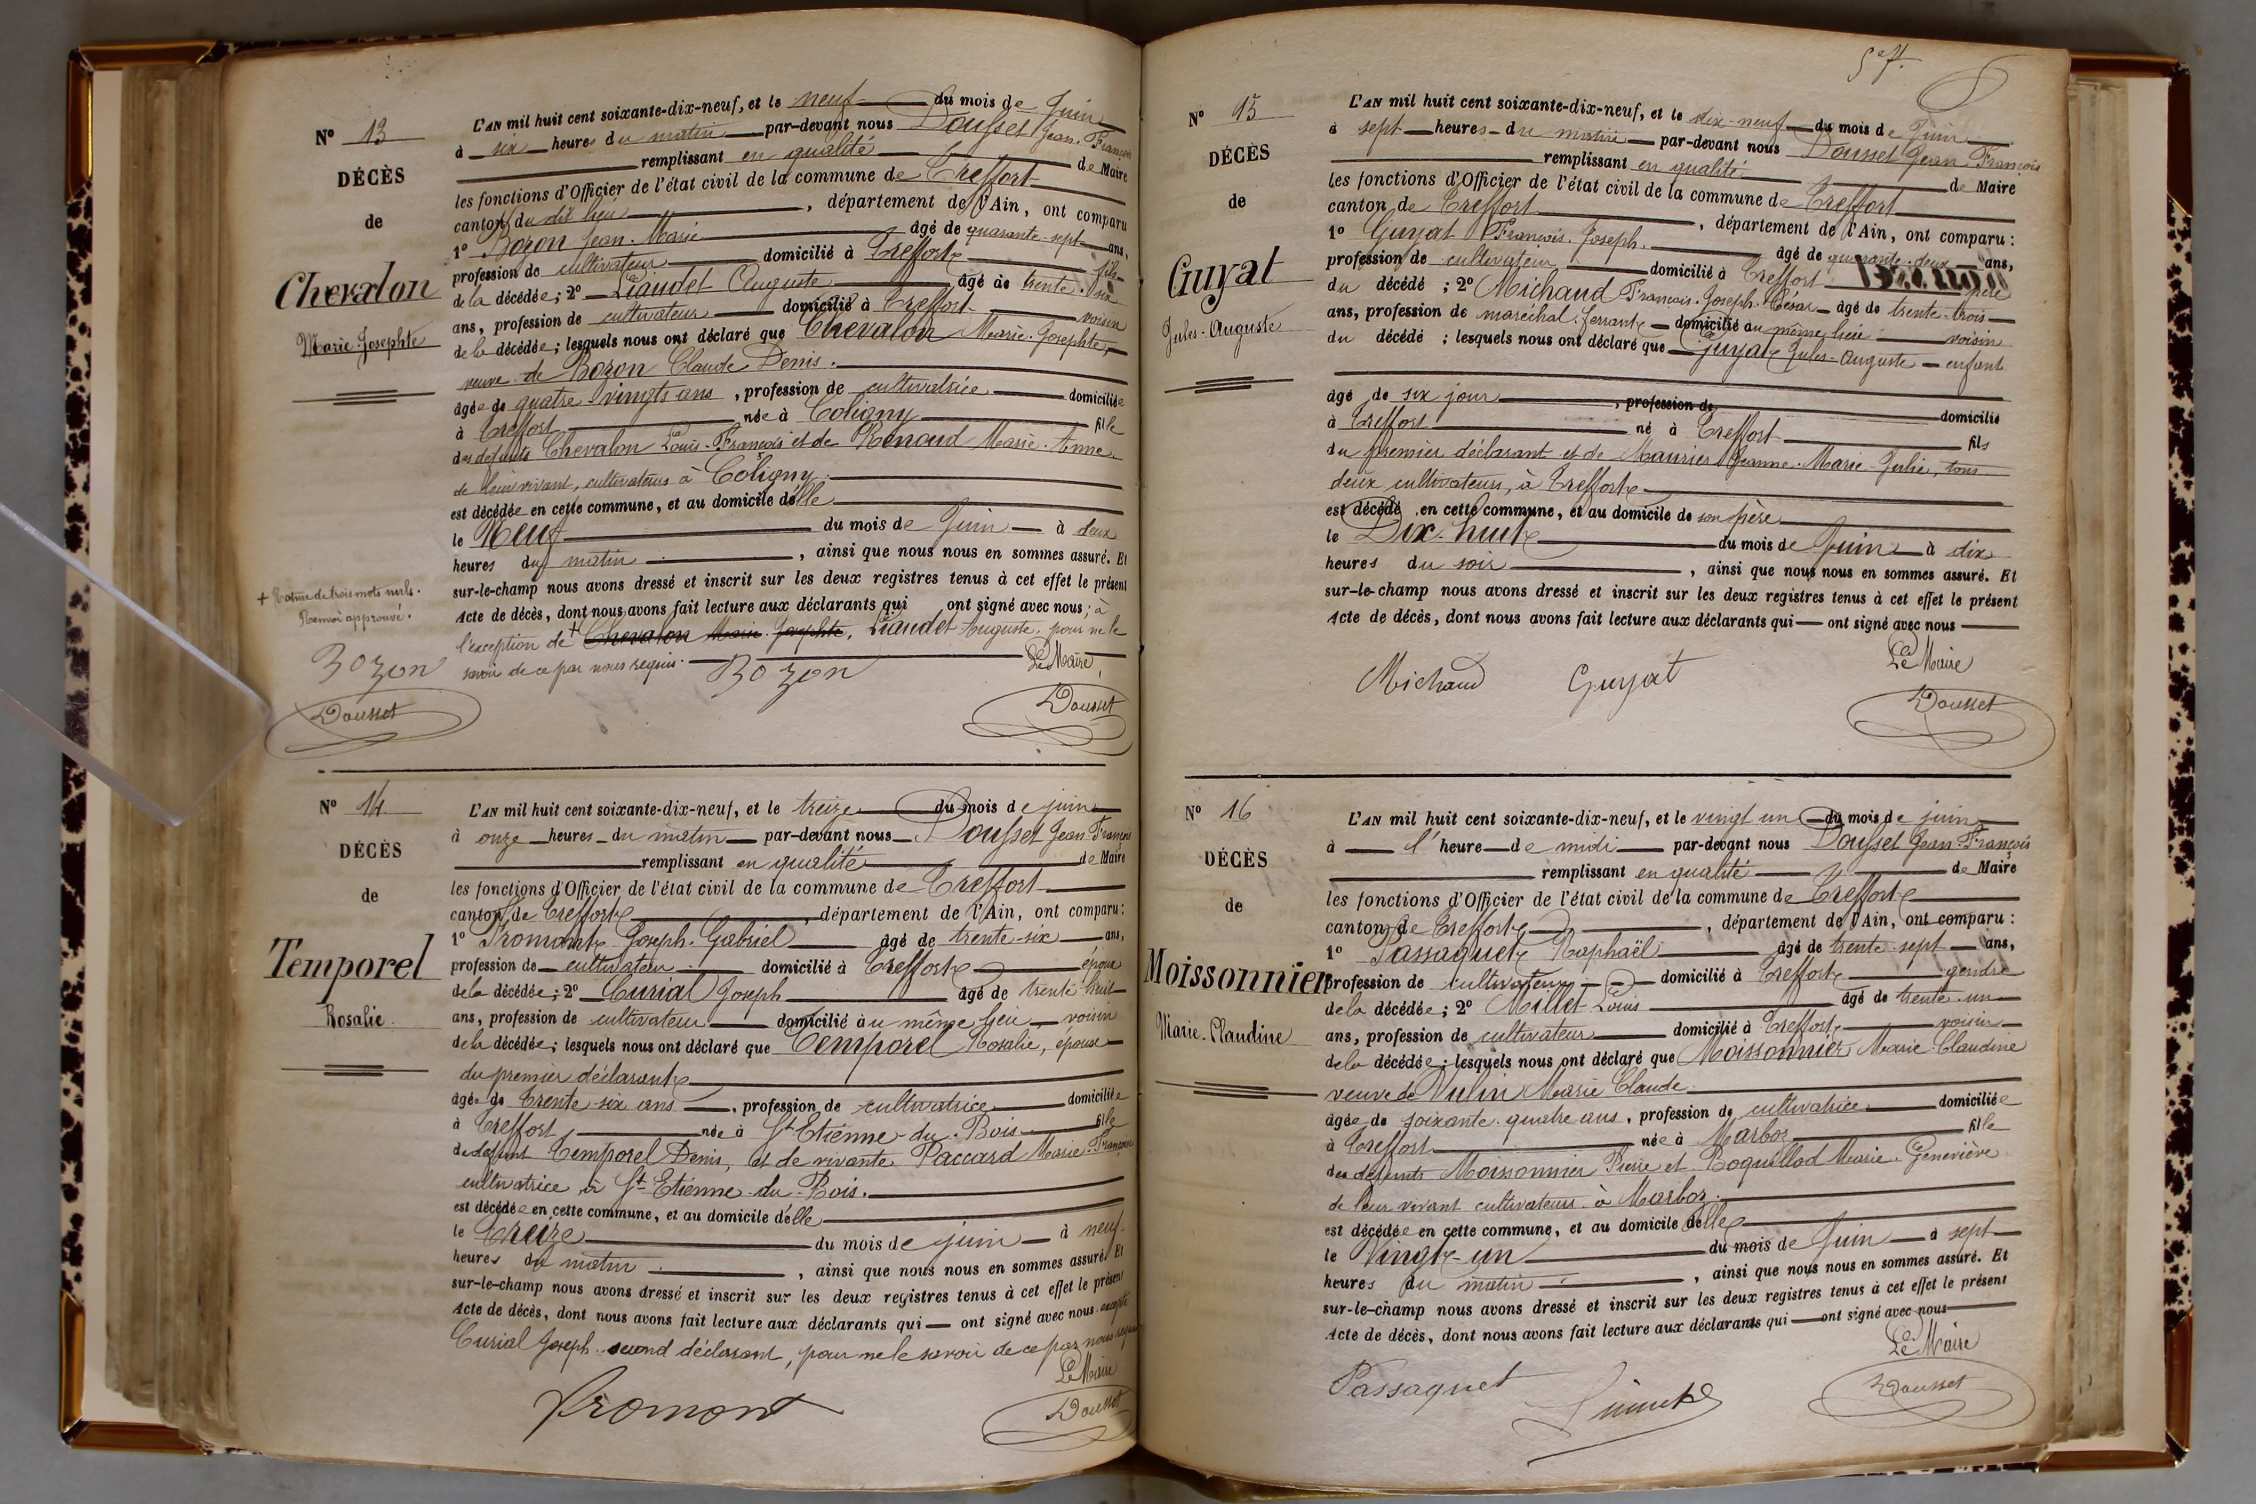 N° 13
DÉCÈS
de
Chevalon
Marie-Josephte
L'AN mil huit cent soixante-dix-neuf, et le neuf du mois de Juin
à six heures du matin par-devant nous Dousset Jean-François
remplissant en qualité de Maire
les fonctions d'Officier de l'état civil de la commune de Treffort
canton du dit lieu, département de l'Ain, ont comparu
1° Bozon Jean-Marie âgé de quarante-sept ans,
profession de cultivateur domicilié à Treffort fils
de la décédée; 2° Liaudet Auguste âgé de trente-six
ans, profession de cultivateur domicilié à Treffort voisin
de la décédée; lesquels nous ont déclaré que Chevalon Marie-Josephte,
veuve de Bozon Claude Denis.
âgée de quatre-vingts ans, profession de cultivatrice domiciliée
à Treffort née à Coligny fille
des défunts Chevalon Louis-François et de Renoud Marie-Anne
de leur vivant, cultivateurs à Coligny.
est décédée en cette commune, et au domicile d'elle
le Neuf du mois de Juin à deux
heures du matin, ainsi que nous nous en sommes assuré. Et
sur-le-champ nous avons dressé et inscrit sur les deux registres tenus à cet effet le présent
Acte de décès, dont nous avons fait lecture aux déclarants qui ont signé avec nous; à
l'exception de + Chevalon Marie-Josephte, Liaudet Auguste, pour ne le
savoir de ce par nous requis.
Le Maire
+ Rature de trois mots nuls.
Renvoi approuvé.
Bozon
Bozon
Dousset
Dousset
N° 14
DÉCÈS
de
Temporel
Rosalie
L'AN mil huit cent soixante-dix-neuf, et le treize du mois de juin
à onze heures du matin par-devant nous Dousset Jean-François
remplissant en qualité de Maire
les fonctions d'Officier de l'état civil de la commune de Treffort
canton de Treffort, département de l'Ain, ont comparu:
1° Fromont Joseph-Gabriel âgé de trente-six ans,
profession de cultivateur domicilié à Treffort époux
de la décédée; 2° Curial Joseph âgé de trente-huit
ans, profession de cultivateur domicilié au même lieu voisin
de la décédée; lesquels nous ont déclaré que Temporel Rosalie, épouse
du premier déclarant
âgée de trente-six ans, profession de cultivatrice domiciliée
à Treffort née à St Etienne-du-Bois fille
de défunt Temporel Denis, et de vivante Paccard Marie-Françoise
cultivatrice à St Etienne-du-Bois.
est décédée en cette commune, et au domicile d'elle
le Treize du mois de juin à neuf
heures du matin, ainsi que nous nous en sommes assuré. Et
sur-le-champ nous avons dressé et inscrit sur les deux registres tenus à cet effet le présent
Acte de décès, dont nous avons fait lecture aux déclarants qui ont signé avec nous excepté
Curial Joseph second déclarant, pour ne le savoir de ce par nous requis
Le Maire
Fromont
Dousset
N° 15
DÉCÈS
de
Guyat
Jules-Auguste
L'AN mil huit cent soixante-dix-neuf, et le dix-neuf du mois de Juin
à sept heures du matin par-devant nous Dousset Jean François
remplissant en qualité de Maire
les fonctions d'Officier de l'état civil de la commune de Treffort
canton de Treffort, département de l'Ain, ont comparu:
1° Guyat François-Joseph âgé de quarante-deux ans,
profession de cultivateur domicilié à Treffort père
du décédé; 2° Michaud François-Joseph-César âgé de trente-trois
ans, profession de maréchal-ferrant domicilié au même lieu voisin
du décédé; lesquels nous ont déclaré que Guyat Jules-Auguste enfant
âgé de six jours, profession de domicilié
à Treffort né à Treffort fils
du premier déclarant et de Maurier Jeanne-Marie-Julie, tous
deux cultivateurs, à Treffort
est décédé en cette commune, et au domicile de son père
le Dix-huit du mois de Juin à dix
heures du soir, ainsi que nous nous en sommes assuré. Et
sur-le-champ nous avons dressé et inscrit sur les deux registres tenus à cet effet le présent
Acte de décès, dont nous avons fait lecture aux déclarants qui ont signé avec nous
Le Maire
Michaud Guyat
Dousset
N° 16
DÉCÈS
de
Moissonnier
Marie-Claudine
L'AN mil huit cent soixante-dix-neuf, et le vingt un du mois de juin
à l'heure de midi par-devant nous Dousset Jean-François
remplissant en qualité de Maire
les fonctions d'Officier de l'état civil de la commune de Treffort
canton de Treffort, département de l'Ain, ont comparu:
1° Passaquet Raphaël âgé de trente-sept ans,
profession de cultivateur domicilié à Treffort gendre
de la décédée; 2° Millet Louis âgé de trente-un
ans, profession de cultivateur domicilié à Treffort voisin
de la décédée; lesquels nous ont déclaré que Moissonnier Marie-Claudine
veuve de Vulin Marie Claude
âgée de soixante-quatre ans, profession de cultivatrice domiciliée
à Treffort née à Marboz fille
des défunts Moissonnier Pierre et Roquillod Marie-Geneviève
de leur vivant cultivateurs à Marboz.
est décédée en cette commune, et au domicile d'elle
le Vingt-un du mois de Juin à sept
heures du matin, ainsi que nous nous en sommes assuré. Et
sur-le-champ nous avons dressé et inscrit sur les deux registres tenus à cet effet le présent
Acte de décès, dont nous avons fait lecture aux déclarants qui ont signé avec nous
Le Maire
Passaquet
Dousset